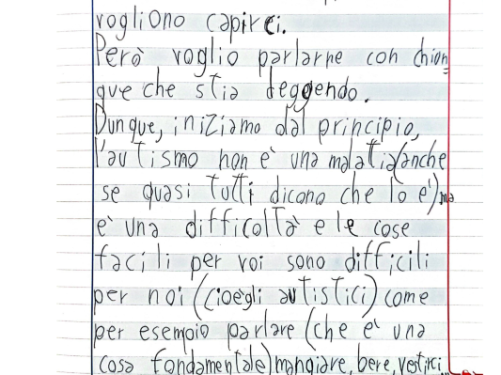 vogliono capirci.
Però voglio parlarne con chion=
que che stia deggendo.
Dunque, iniziamo dal principio,
l'autismo non è una malatia(anche
se quasi tutti dicono che lo è)ma
è una difficoltà e le cose
facili per voi sono difficili
per noi (cioègli autistici) come
per esempoio parlare (che è una
cosa fondamentale) mangiare, bere, vestirci...